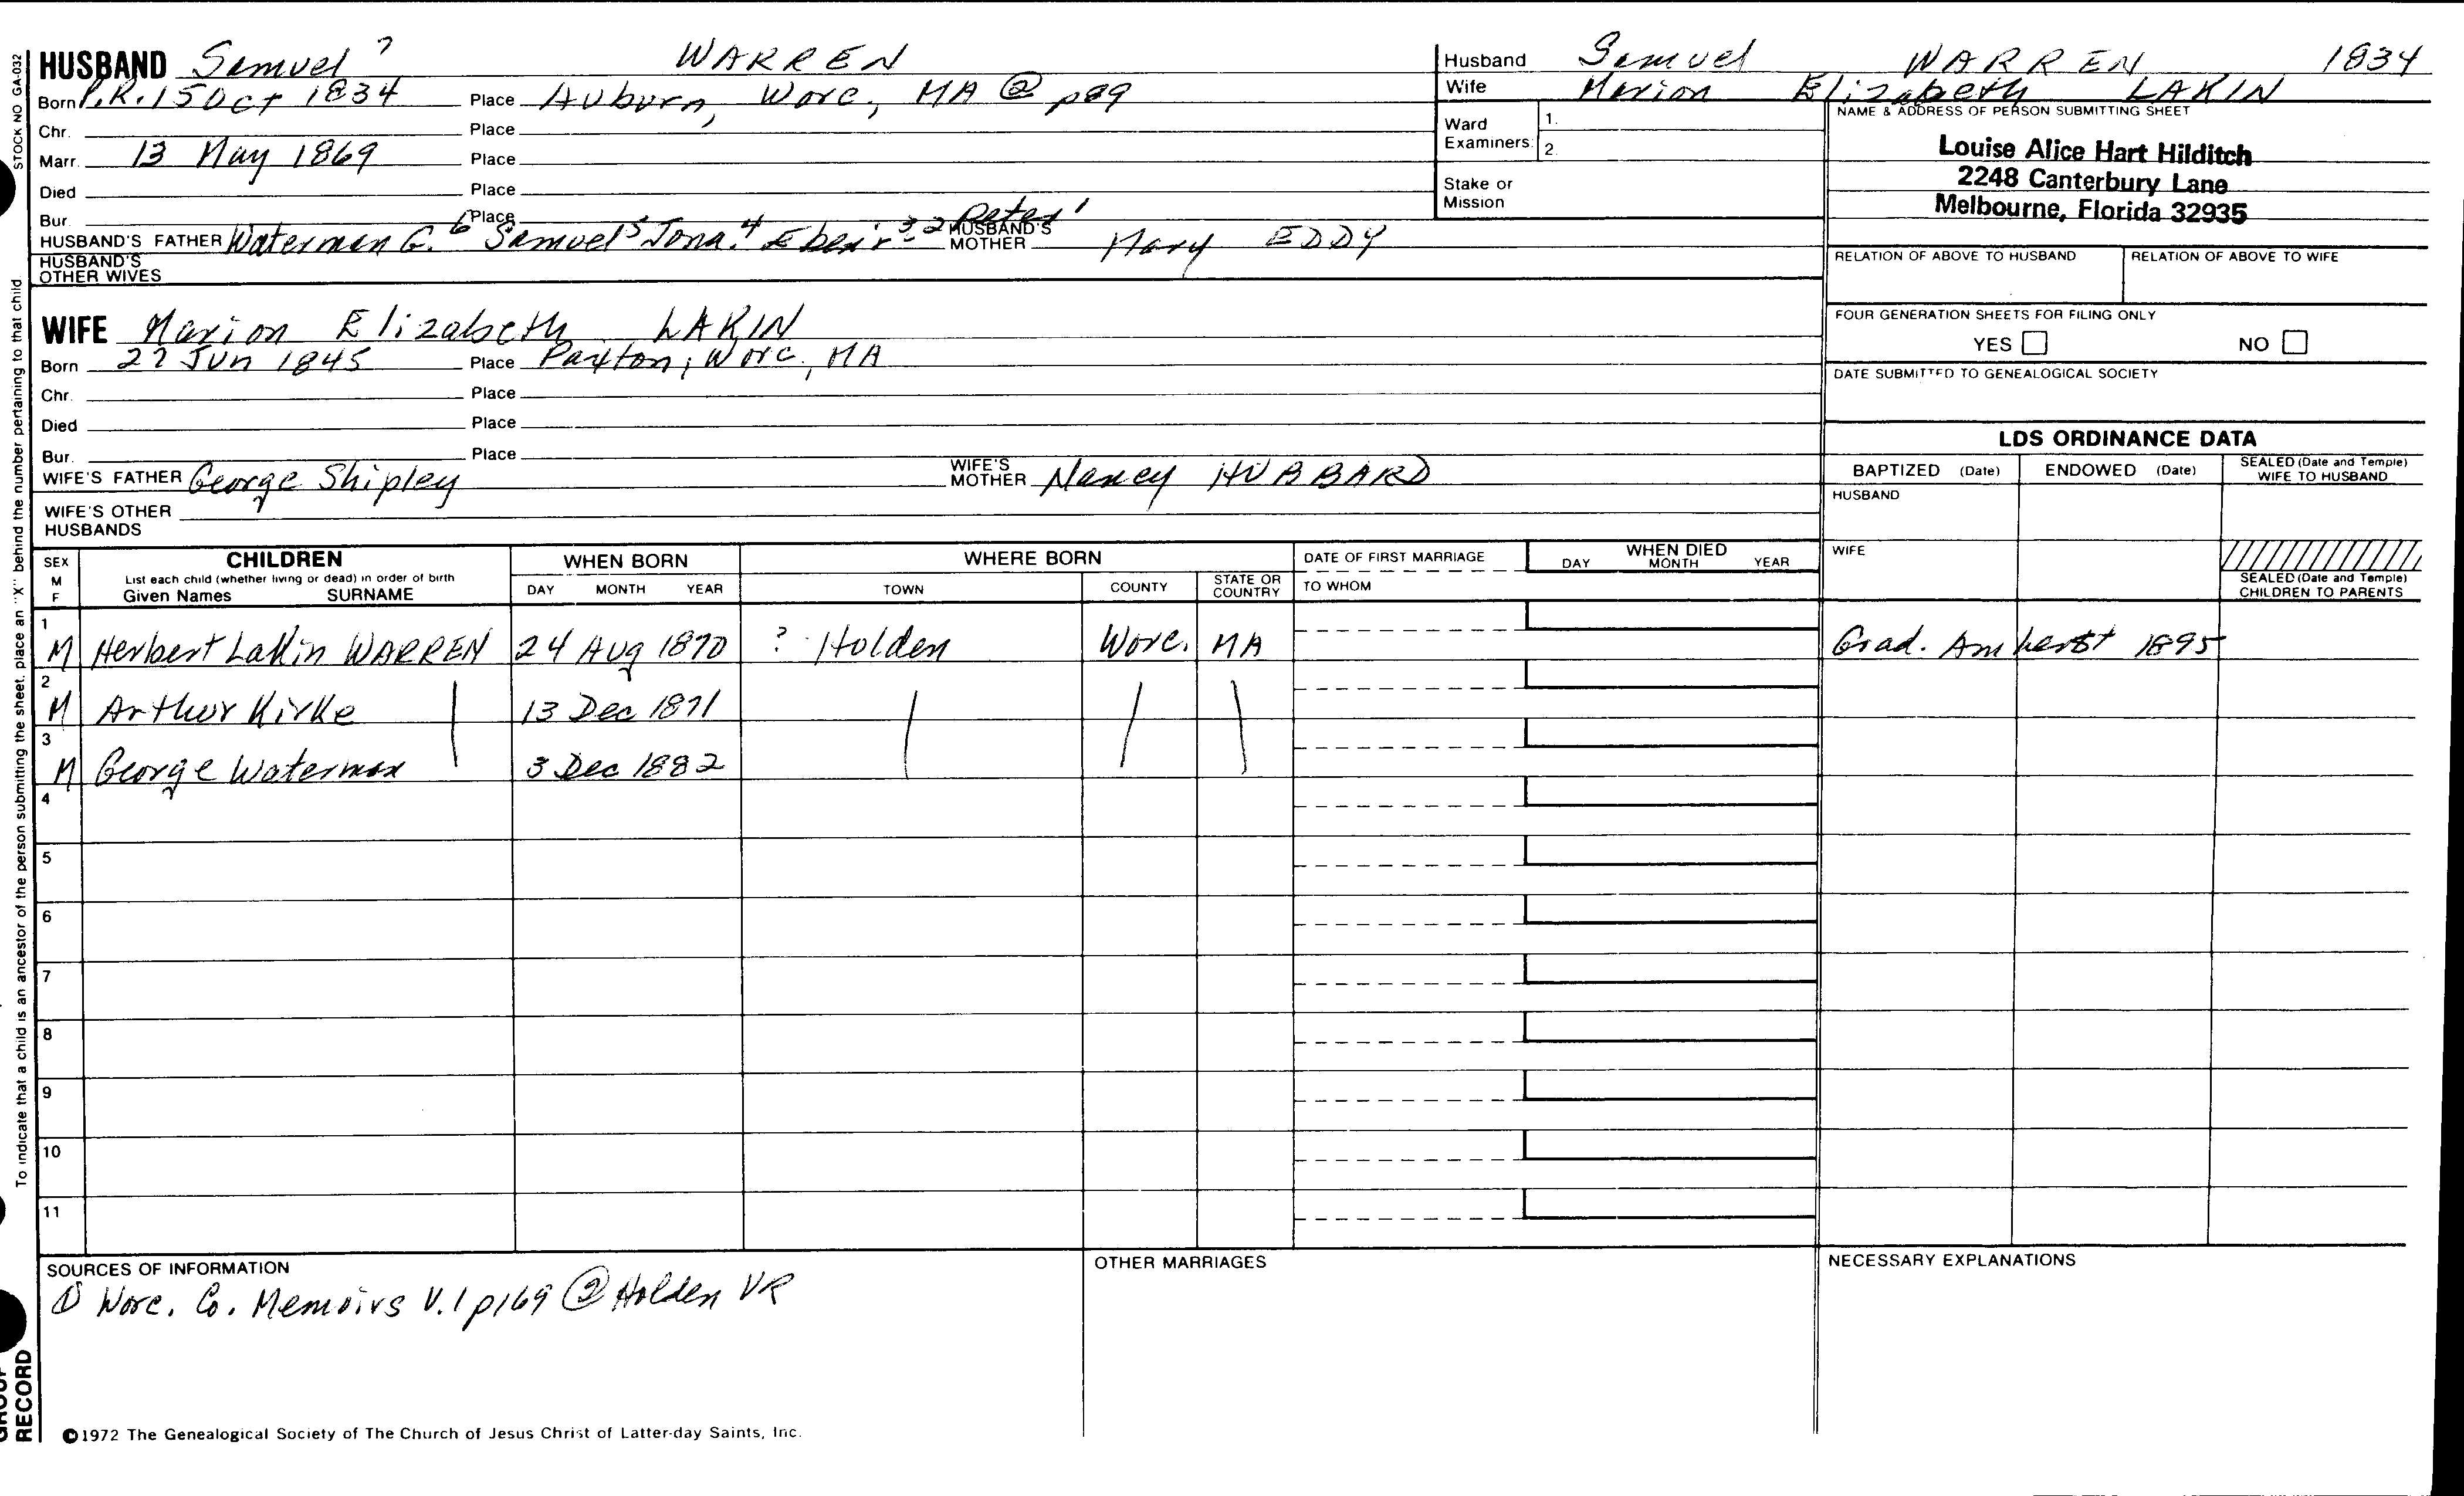 STOCK NO GA-032
HUSBAND Samuel 7 WARREN
Born P.R. 15 Oct 1834 Place Auburn, Worc, MA @ p89
Chr. Place
Marr. 13 May 1869 Place
Died Place
Bur. Place
HUSBAND'S FATHER Waterman G. 6 Samuel 5 Jona. 4 Ebenr 3-2 Peter 1 HUSBAND'S MOTHER Mary EDDY
HUSBAND'S OTHER WIVES
WIFE Marion Elizabeth LAKIN
Born 22 Jun 1845 Place Paxton, Worc, MA
Chr. Place
Died Place
Bur. Place
WIFE'S FATHER George Shipley WIFE'S MOTHER Nancy HUBBARD
WIFE'S OTHER HUSBANDS
Husband Samuel WARREN 1834
Wife Marion Elizabeth LAKIN
Ward Examiners: 1. 2.
Stake or Mission
NAME & ADDRESS OF PERSON SUBMITTING SHEET
Louise Alice Hart Hilditch
2248 Canterbury Lane
Melbourne, Florida 32935
RELATION OF ABOVE TO HUSBAND RELATION OF ABOVE TO WIFE
FOUR GENERATION SHEETS FOR FILING ONLY
YES NO
DATE SUBMITTED TO GENEALOGICAL SOCIETY
LDS ORDINANCE DATA
BAPTIZED (Date) ENDOWED (Date) SEALED (Date and Temple) WIFE TO HUSBAND
HUSBAND
WIFE
SEALED (Date and Temple) CHILDREN TO PARENTS
SEX M F CHILDREN WHEN BORN WHERE BORN DATE OF FIRST MARRIAGE WHEN DIED
List each child (whether living or dead) in order of birth
Given Names SURNAME DAY MONTH YEAR TOWN COUNTY STATE OR COUNTRY TO WHOM DAY MONTH YEAR
1 M Herbert Lakin WARREN 24 Aug 1870 ? Holden Worc. MA Grad. Amherst 1895
2 M Arthur Kirke 13 Dec 1871
3 M George Waterman 3 Dec 1882
4
5
6
7
8
9
10
11
SOURCES OF INFORMATION
① Worc. Co. Memoirs V.1 p169 ② Holden VR
OTHER MARRIAGES
NECESSARY EXPLANATIONS
To indicate that a child is an ancestor of the person submitting the sheet, place an "X" behind the number pertaining to that child.
GROUP RECORD
©1972 The Genealogical Society of The Church of Jesus Christ of Latter-day Saints, Inc.